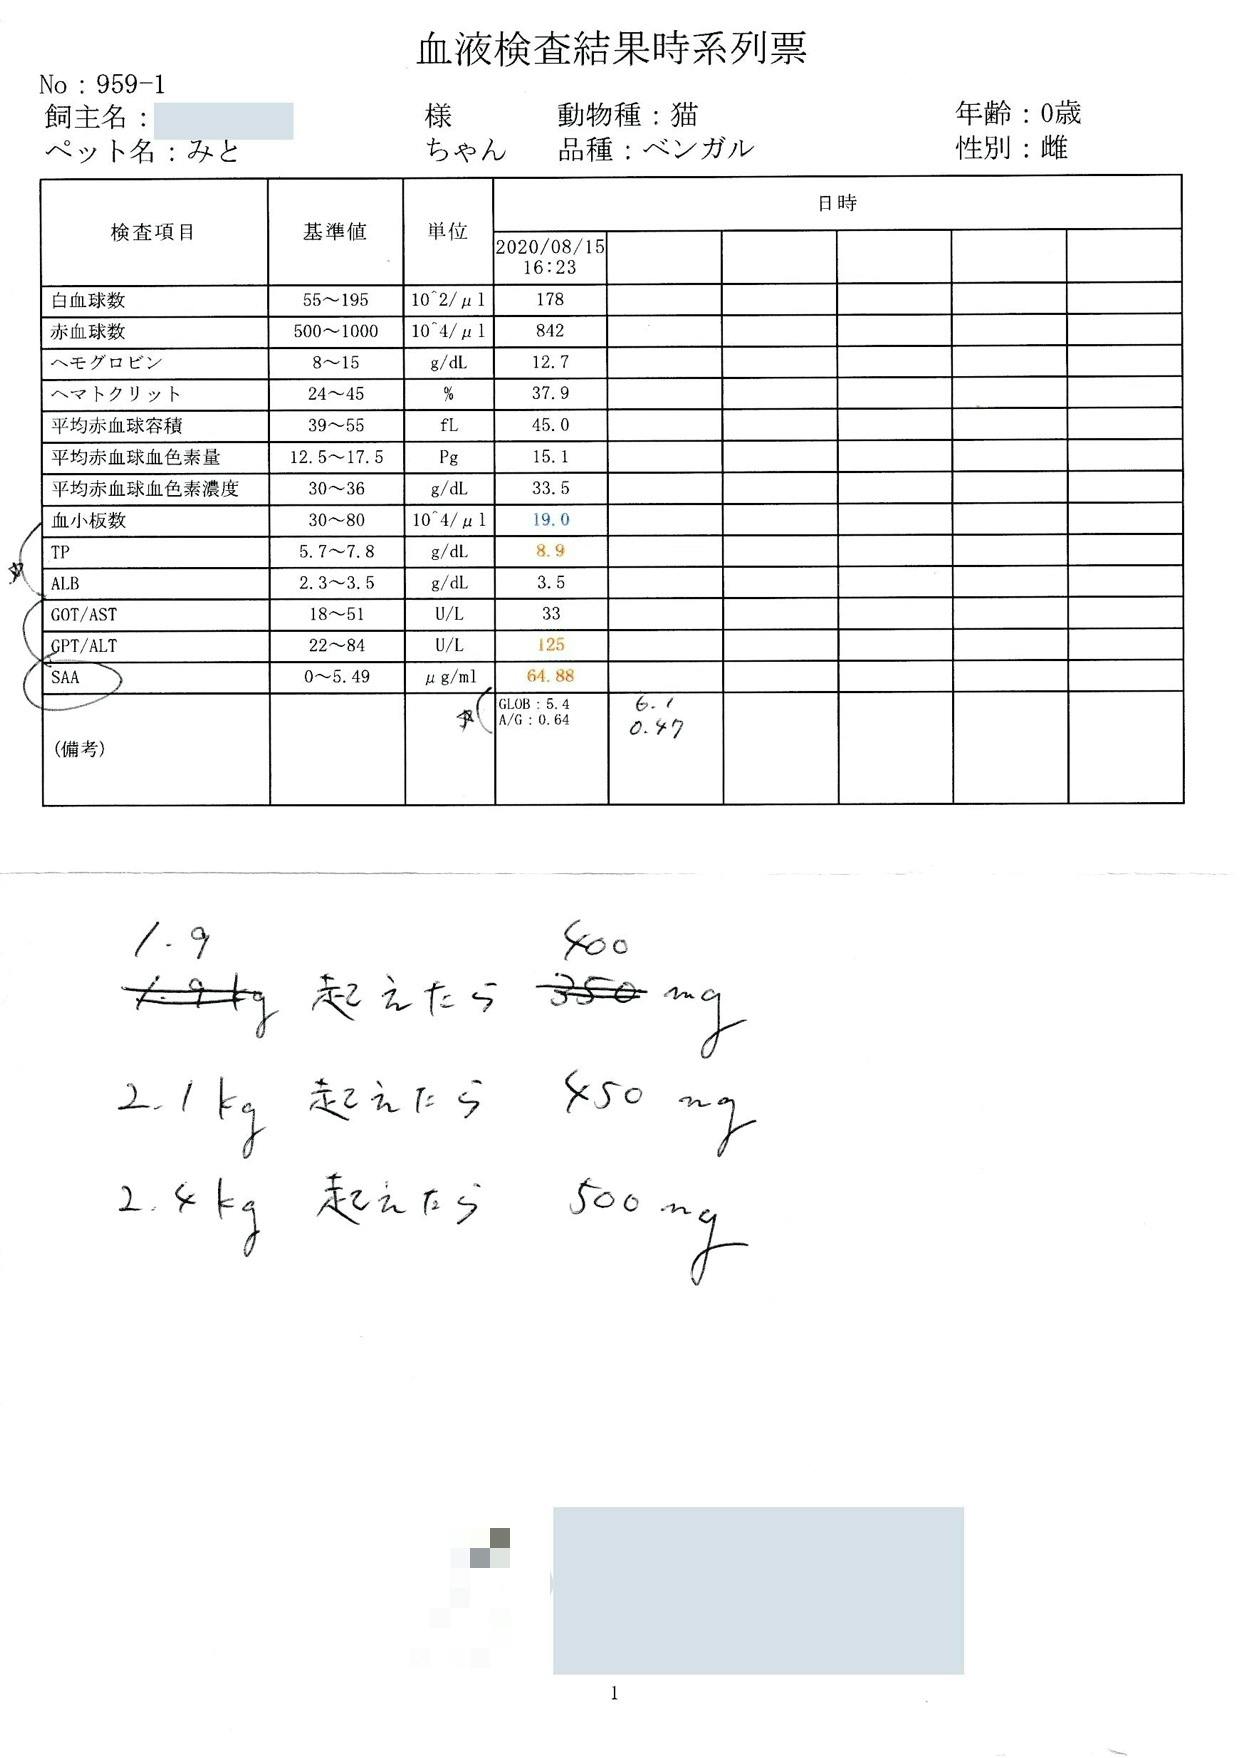 血液検査結果時系列票
No：959-1
飼主名： 様 動物種：猫 年齢：0歳
ペット名：みと ちゃん 品種：ベンガル 性別：雌
検査項目 基準値 単位 日時
2020/08/15
16:23
白血球数 55〜195 10^2/μl 178
赤血球数 500〜1000 10^4/μl 842
ヘモグロビン 8〜15 g/dL 12.7
ヘマトクリット 24〜45 % 37.9
平均赤血球容積 39〜55 fL 45.0
平均赤血球血色素量 12.5〜17.5 Pg 15.1
平均赤血球血色素濃度 30〜36 g/dL 33.5
血小板数 30〜80 10^4/μl 19.0
TP 5.7〜7.8 g/dL 8.9
ALB 2.3〜3.5 g/dL 3.5
GOT/AST 18〜51 U/L 33
GPT/ALT 22〜84 U/L 125
SAA 0〜5.49 μg/ml 64.88
GLOB：5.4 6.1
A/G：0.64 0.47
(備考)
1.9 400
1.9kg 超えたら 350 mg
2.1kg 超えたら 450 mg
2.4kg 超えたら 500 mg
1